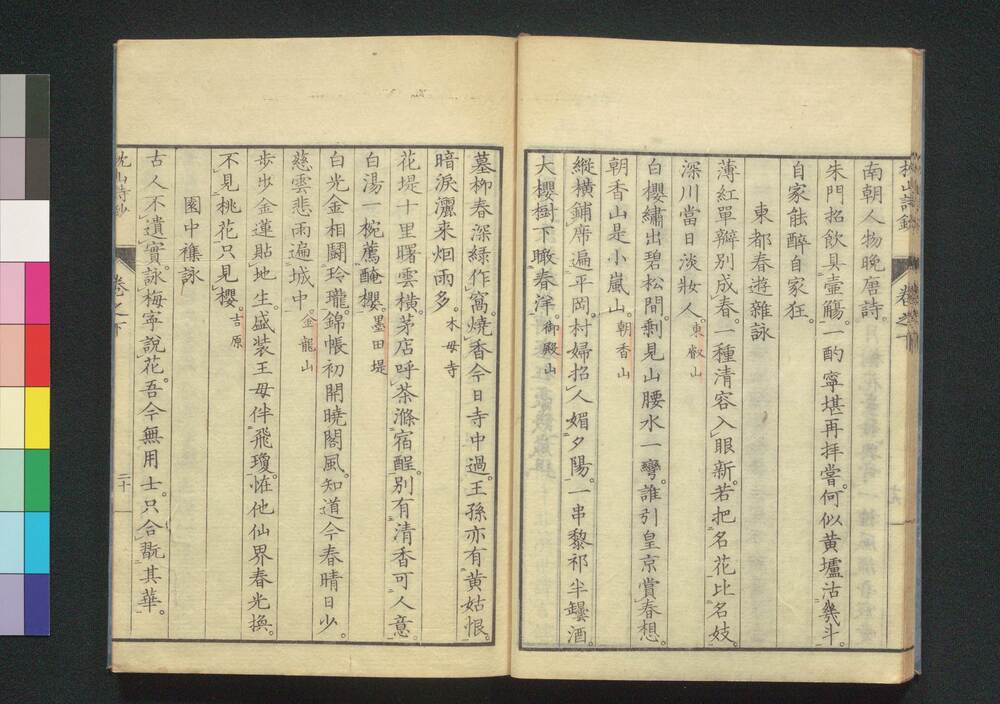 南朝人物晩唐詩。
朱門招飲具壷觴。一酌寧堪再拝嘗。何似黄壚沽幾斗。
自家能醉自家狂。
東都春遊雑詠
薄紅單瓣別成春。一種清容入眼新。若把名花比名妓。
深川當日淡妝人。東叡山
白櫻繡出碧松間。剰見山腰水一彎。誰引皇京賞春想。
朝香山是小嵐山。朝香山
縱横鋪席遍平岡。村婦招人媚夕陽。一串黎祁半罎酒。
大櫻樹下瞰春洋。御殿山
墓柳春深緑作窩。焼香今日寺中過。王孫亦有黄姑恨。
暗淚灑来烟雨多。木母寺
花堤十里曙雲横。茅店呼茶滌宿酲。別有清香可人意。
白湯一椀薦醃櫻。墨田堤
白光金相闘玲瓏。錦帳初開曉閣風。知道今春晴日少。
慈雲悲雨遍城中。金龍山
歩歩金蓮貼地生。盛装王母伴飛瓊。恠他仙界春光換。
不見桃花只見櫻。吉原
園中雜詠
古人不遺實。詠梅寧說花。吾今無用士。只合翫其華。
山詩鈔
卷之下
二十